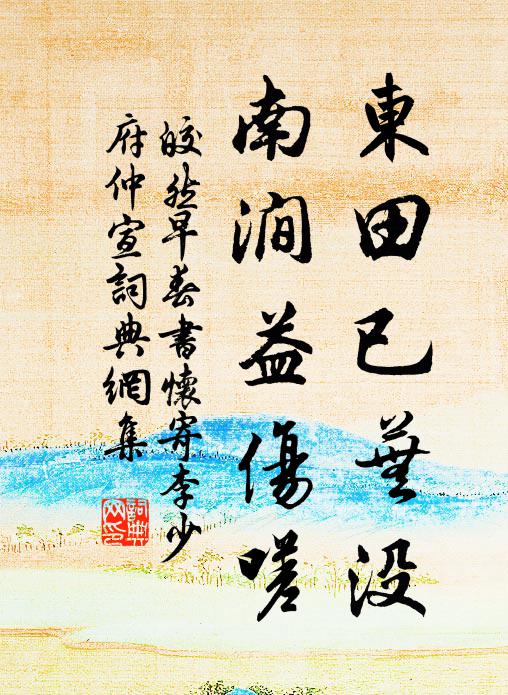 東田已蕪没
南澗益傷嗟
皎然早春書懷寄李少
府仲宣詞典網集